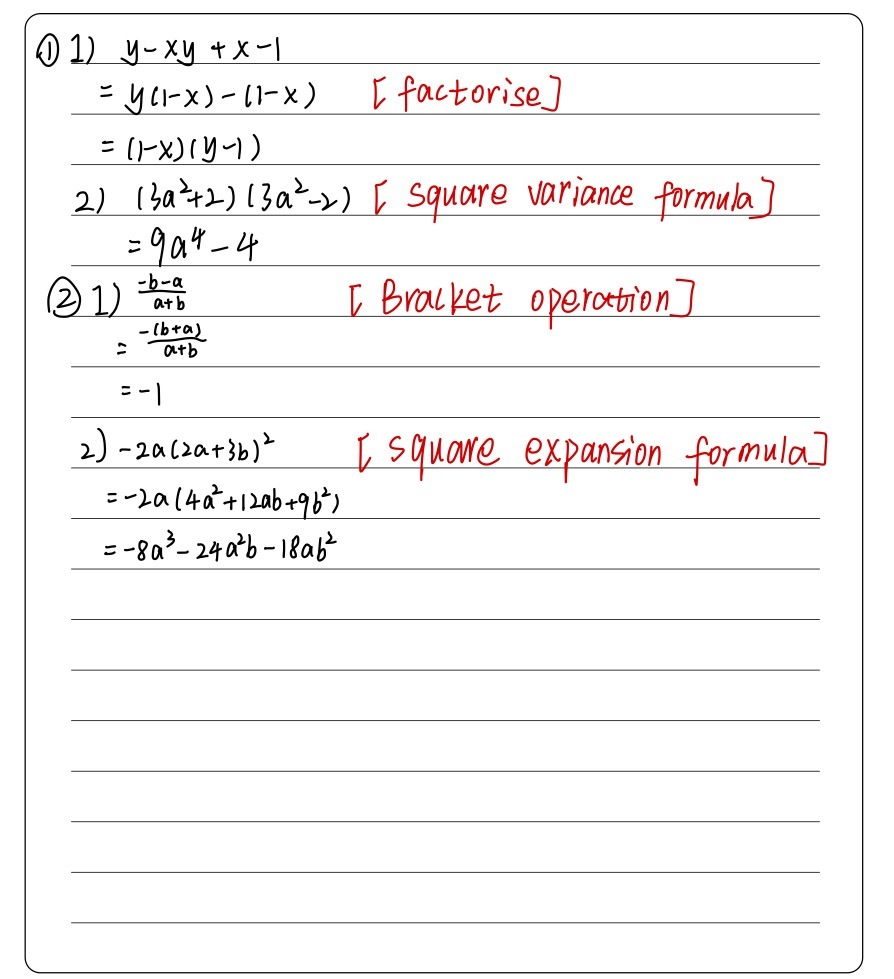 ① 1) y-xy+x-1
= y(1-x)-(1-x) [factorise]
= (1-x)(y-1)
2) (3a²+2)(3a²-2) [square variance formula]
= 9a⁴-4
② 1) (-b-a)/(a+b) [Bracket operation]
= (-(b+a))/(a+b)
= -1
2) -2a(2a+3b)² [square expansion formula]
= -2a(4a²+12ab+9b²)
= -8a³-24a²b-18ab²